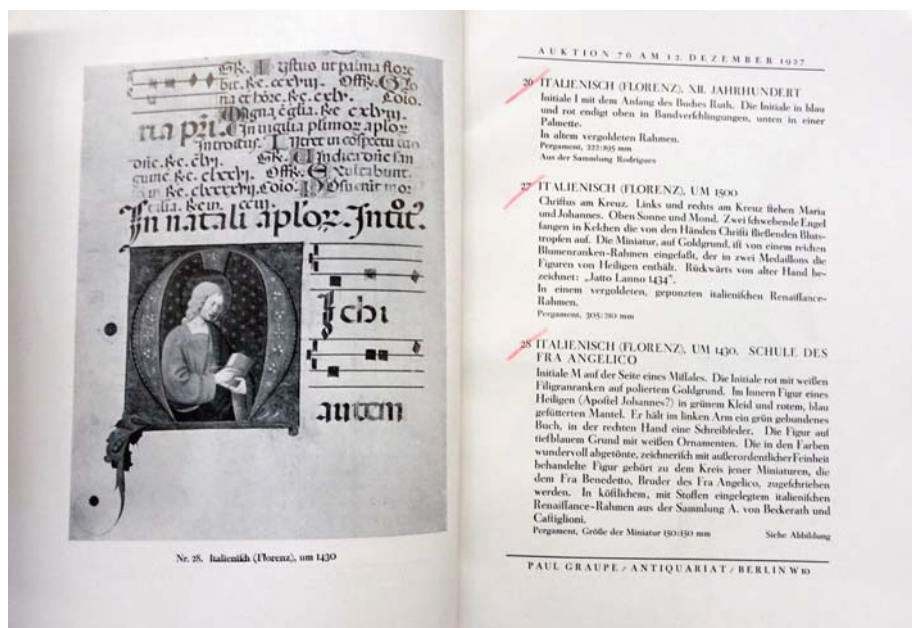 GR. Iustus ut palma flore
bit. Re. ccxviii. Offe.
Coio.
In uigilia plurimoꝝ aploꝝ
In natali aploꝝ. Introit.
Michi
autem
Nr. 28. Italienisch (Florenz), um 1430
AUKTION 76 AM 12. DEZEMBER 1927
26 ITALIENISCH (FLORENZ), XII. JAHRHUNDERT
Initiale I mit dem Anfang des Buches Ruth. Die Initiale in blau
und rot endigt oben in Bandverſchlingungen, unten in einer
Palmette.
In altem vergoldeten Rahmen.
Pergament, 222:195 mm
Aus der Sammlung Rodrigues
27 ITALIENISCH (FLORENZ), UM 1500
Chriſtus am Kreuz. Links und rechts am Kreuz ſtehen Maria
und Johannes. Oben Sonne und Mond. Zwei ſchwebende Engel
fangen in Kelchen die von den Händen Chriſti fließenden Bluts-
tropfen auf. Die Miniatur, auf Goldgrund, iſt von einem reichen
Blumenranken-Rahmen eingefaßt, der in zwei Medaillons die
Figuren von Heiligen enthält. Rückwärts von alter Hand be-
zeichnet: „Jatto Lanno 1434“.
In einem vergoldeten, gepunzten italieniſchen Renaiſſance-
Rahmen.
Pergament, 305:210 mm
28 ITALIENISCH (FLORENZ), UM 1430. SCHULE DES
FRA ANGELICO
Initiale M auf der Seite eines Miſſales. Die Initiale rot mit weißen
Filigranranken auf poliertem Goldgrund. Im Innern Figur eines
Heiligen (Apoſtel Johannes?) in grünem Kleid und rotem, blau
gefütterten Mantel. Er hält im linken Arm ein grün gebundenes
Buch, in der rechten Hand eine Schreibfeder. Die Figur auf
tiefblauem Grund mit weißen Ornamenten. Die in den Farben
wundervoll abgetönte, zeichneriſch mit außerordentlicher Feinheit
behandelte Figur gehört zu dem Kreis jener Miniaturen, die
dem Fra Benedetto, Bruder des Fra Angelico, zugeſchrieben
werden. In köſtlichem, mit Stoffen eingelegtem italieniſchen
Renaiſſance-Rahmen aus der Sammlung A. von Beckerath und
Caſtiglioni.
Pergament, Größe der Miniatur 150:150 mm Siehe Abbildung
PAUL GRAUPE / ANTIQUARIAT / BERLIN W 10